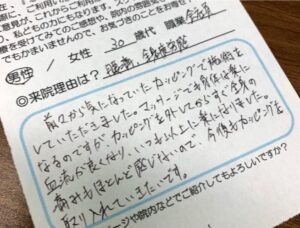 私ども力になります。ス
療を受けてみてのご感想や、院内の雰囲気
でもかまいませんので、お書きください
男性 / 女性 30 歳代 職業 会社員
◎来院理由は？ 腰痛、
前々から気になっていたカッピングで施術を
していただきました。マッサージでも身体は楽に
なるのですが、カッピングを外してからすごく全身の
血流が良くなり、いつも以上に楽になりました。
痛みもほとんど感じないので、今後もカッピングを
取り入れていきたいです。
ページや院内などでご紹介してもよろしいですか？